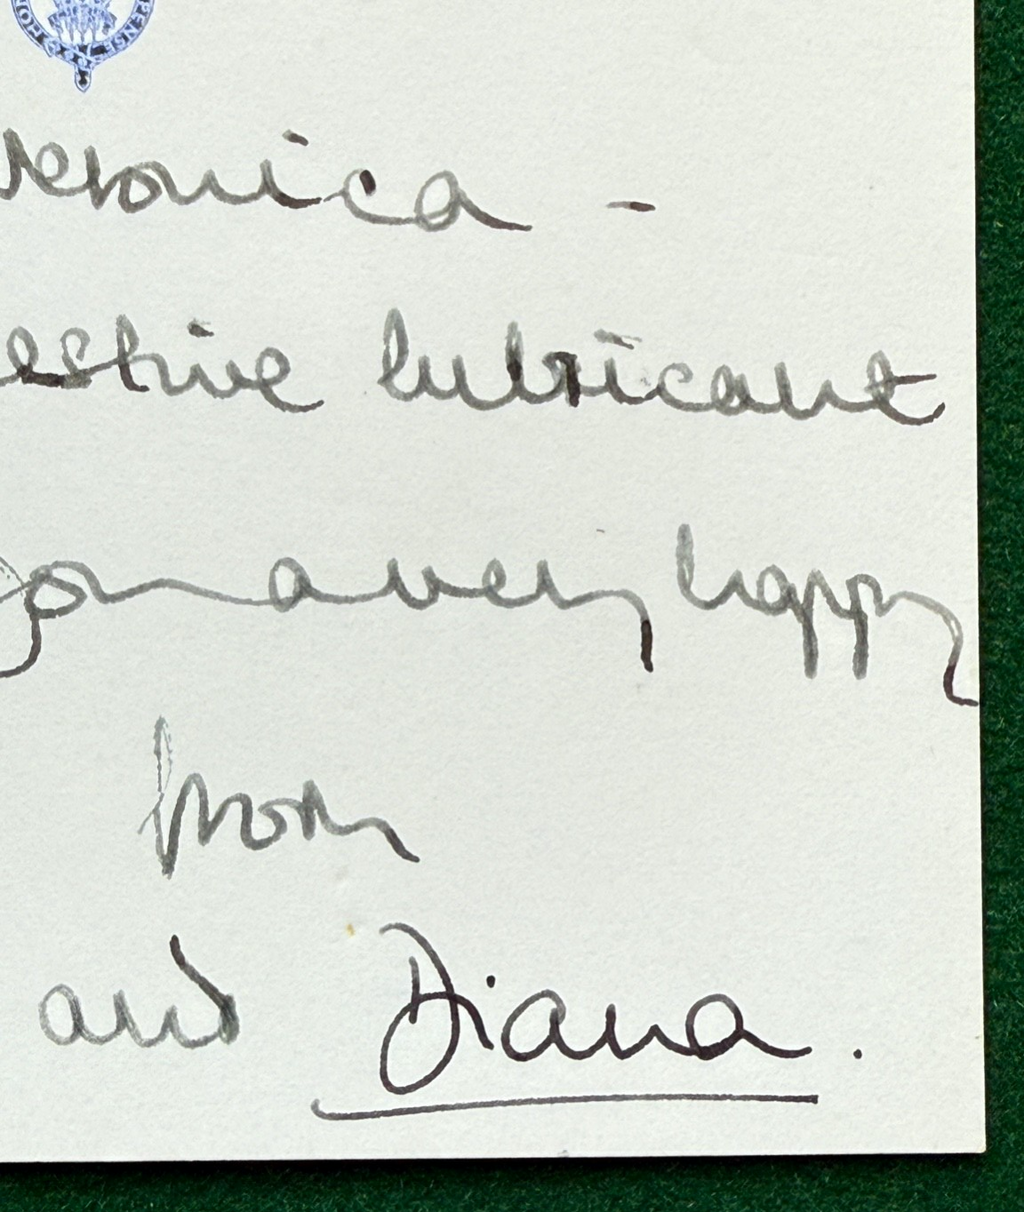 PENSE HON
Veronica -
estive lubricant
for a very happy
from
and Diana.